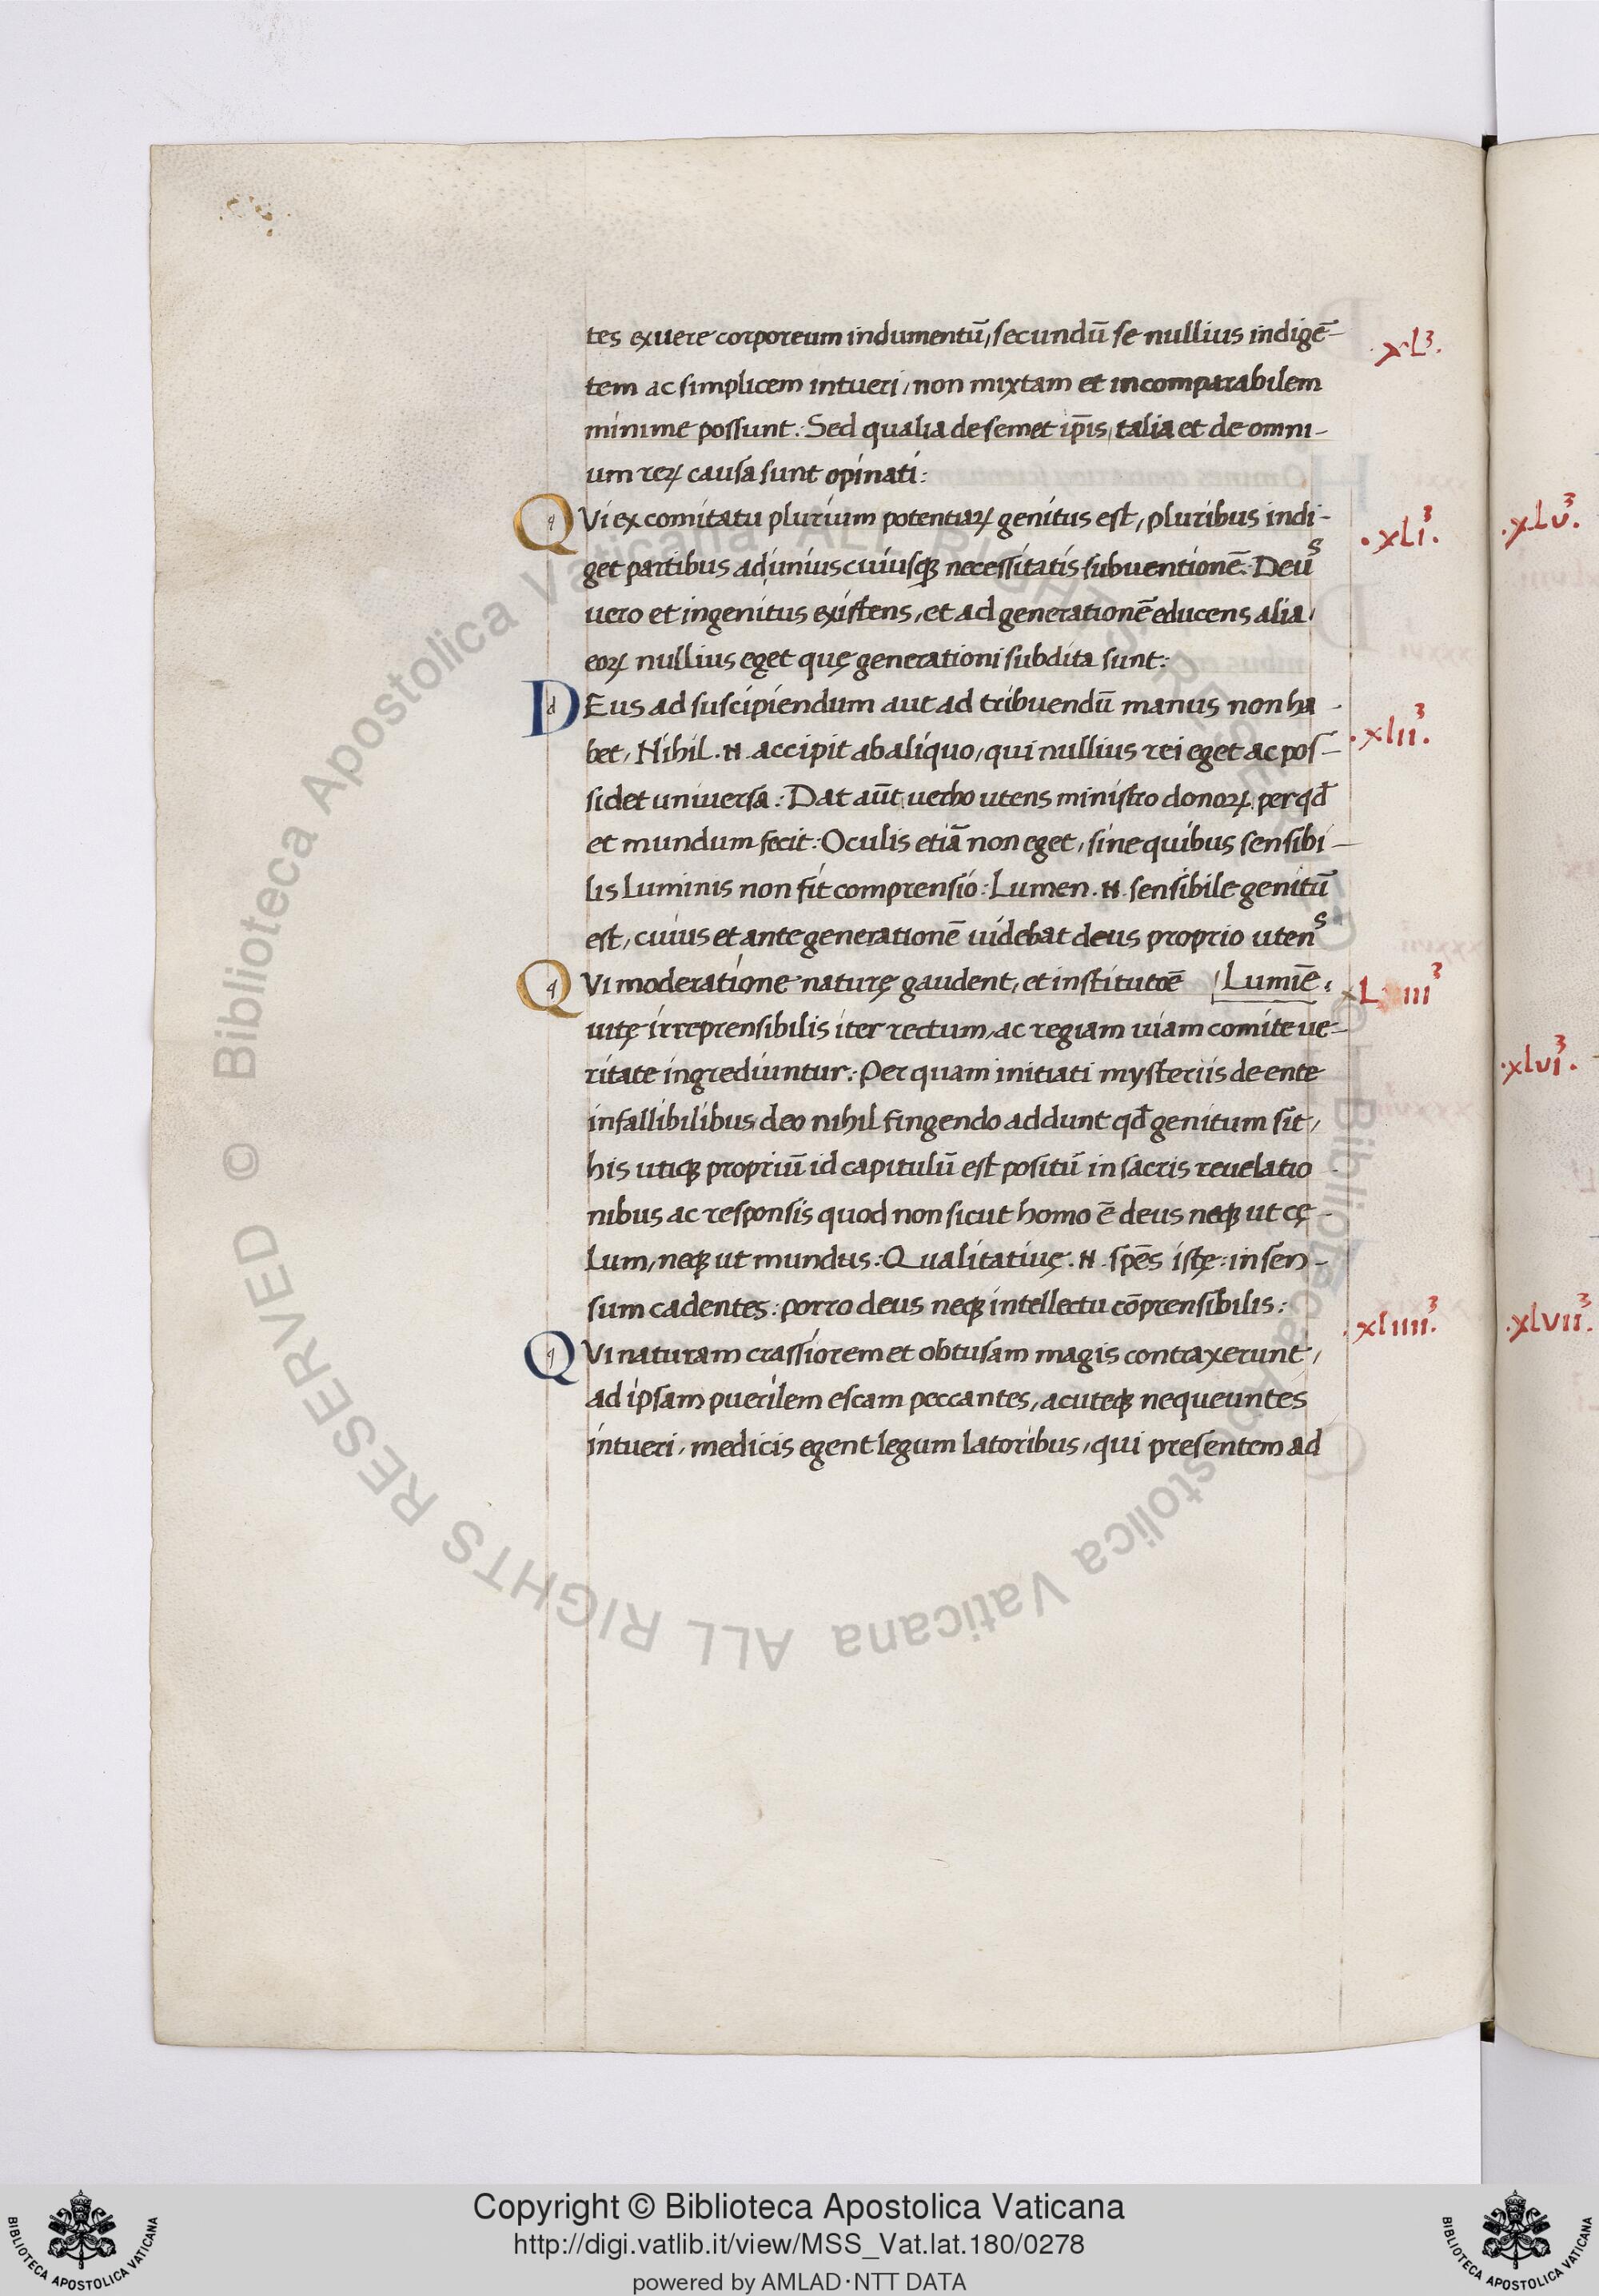 tes exuere corporeum indumentū, secundū se nullius indigē-
tem ac simplicem intueri, non mixtam et incomparabilem
minime possunt: Sed qualia de semet ip̄is, talia et de omni-
um reꝝ causa sunt opinati:
.xl3.
QVi ex comitatu plurium potentiaꝝ genitus est, pluribus indi-
get partibus ad unius cuiusqꝫ necessitatis subuentionē: Deus
uero et ingenitus existens, et ad generationē educens alia,
eoꝝ nullius eget quę generationi subdita sunt:
.xli3.
DEus ad suscipiendum aut ad tribuendū manus non ha-
bet, Nihil .N. accipit ab aliquo, qui nullius rei eget ac pos-
sidet universa: Dat aūt uerbo utens ministro donoꝝ per qđ
et mundum fecit: Oculis etiā non eget, sine quibus sensibi-
lis luminis non fit comprensio: Lumen .N. sensibile genitū
est, cuius et ante generationē uidebat deus proprio utens
Lumiē:
.xlii3.
QVi moderatione naturę gaudent, et institutōē
uitę irreprensibilis iter rectum, ac regiam uiam comite ue-
ritate ingrediuntur: Per quam initiati mysteriis de ente
infallibilibus deo nihil fingendo addunt qđ genitum sit,
his utiqꝫ propriū id capitulū est positū in sacris reuelatio-
nibus ac responsis quod non sicut homo ē deus neqꝫ ut cę-
lum, neqꝫ ut mundus: Qualitatiuę .N. spēs istę: in sen-
sum cadentes: porro deus neqꝫ intellectu cōprensibilis:
xLiii3
QVi naturam crassiorem et obtusam magis contraxerunt,
ad ipsam puerilem escam peccantes, acuteqꝫ nequeuntes
intueri, medicis egent legum latoribus, qui presentem ad
.xliiii3.
.xLv3.
.xlvi3.
.xlvii3.
© Biblioteca Apostolica Vaticana ALL RIGHTS RESERVED © Biblioteca Apostolica Vaticana ALL RIGHTS RESERVED
Copyright © Biblioteca Apostolica Vaticana
http://digi.vatlib.it/view/MSS_Vat.lat.180/0278
powered by AMLAD·NTT DATA
BIBLIOTECA APOSTOLICA VATICANA
BIBLIOTECA APOSTOLICA VATICANA